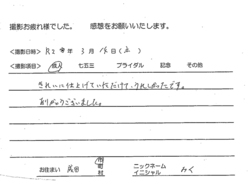 撮影お疲れ様でした。 感想をお願いいたします。
<撮影日時> R2年 3月 15日(土)
<撮影項目> 成人 七五三 ブライダル 記念 その他
きれいに仕上げていただけて、うれしかったです。
ありがとうございました。
お住まい 市 町 村 ニックネーム イニシャル みく